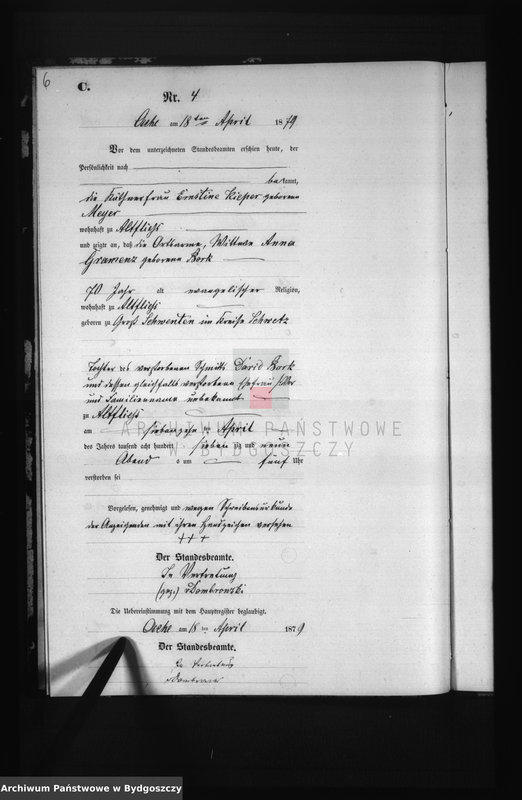 6
C.
Nr. 4
Oche am 18ten April 1879
Vor dem unterzeichneten Standesbeamten erschien heute, der
Persönlichkeit nach
bekannt,
die Käthnerfrau Ernstine Kieper geborene
Meyer
wohnhaft zu Altfließ
und zeigte an, daß die Ortsarme, Wittwe Anna
Gramenz geborene Bork
70 Jahr alt evangelischer Religion,
wohnhaft zu Altfließ
geboren zu Groß Schwenten im Kreise Schwetz
Tochter des verstorbenen Schmidts David Bork
und dessen gleichfalls verstorbene Ehefrau
und Familienname unbekannt
zu Altfließ
am siebzehn ten April
des Jahres tausend acht hundert sieben zig und neun
Abend s um fünf Uhr
verstorben sei
Vorgelesen, genehmigt und wegen Schreibensunkunde
der Anzeigenden mit ihren Handzeichen versehen
+++
Der Standesbeamte.
In Vertretung
(gez.) vDombrowski
Die Uebereinstimmung mit dem Hauptregister beglaubigt.
Oche am 18ten April 1879
Der Standesbeamte.
In Vertretung
vDombrowski
ARCHIWUM PAŃSTWOWE
W BYDGOSZCZY
Archiwum Państwowe w Bydgoszczy